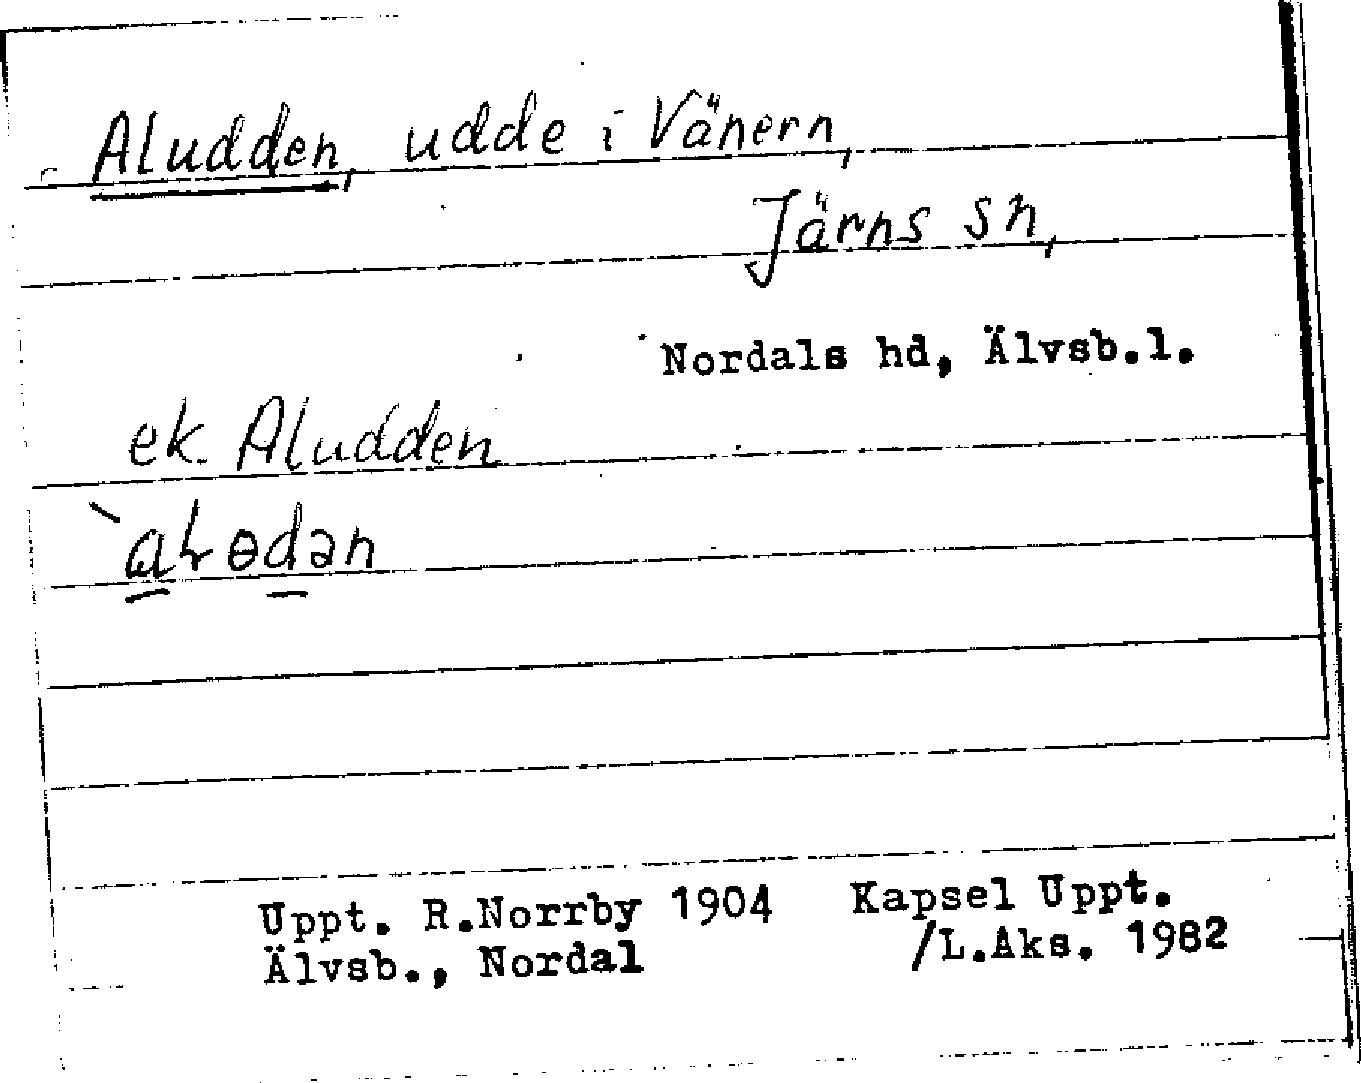 Aludden, udde i Vänern,
Järns sn,
Nordals hd, Älvsb.l.
ek. Aludden
Uppt. R.Norrby 1904 Kapsel Uppt.
Älvsb., Nordal /L.Aks. 1982